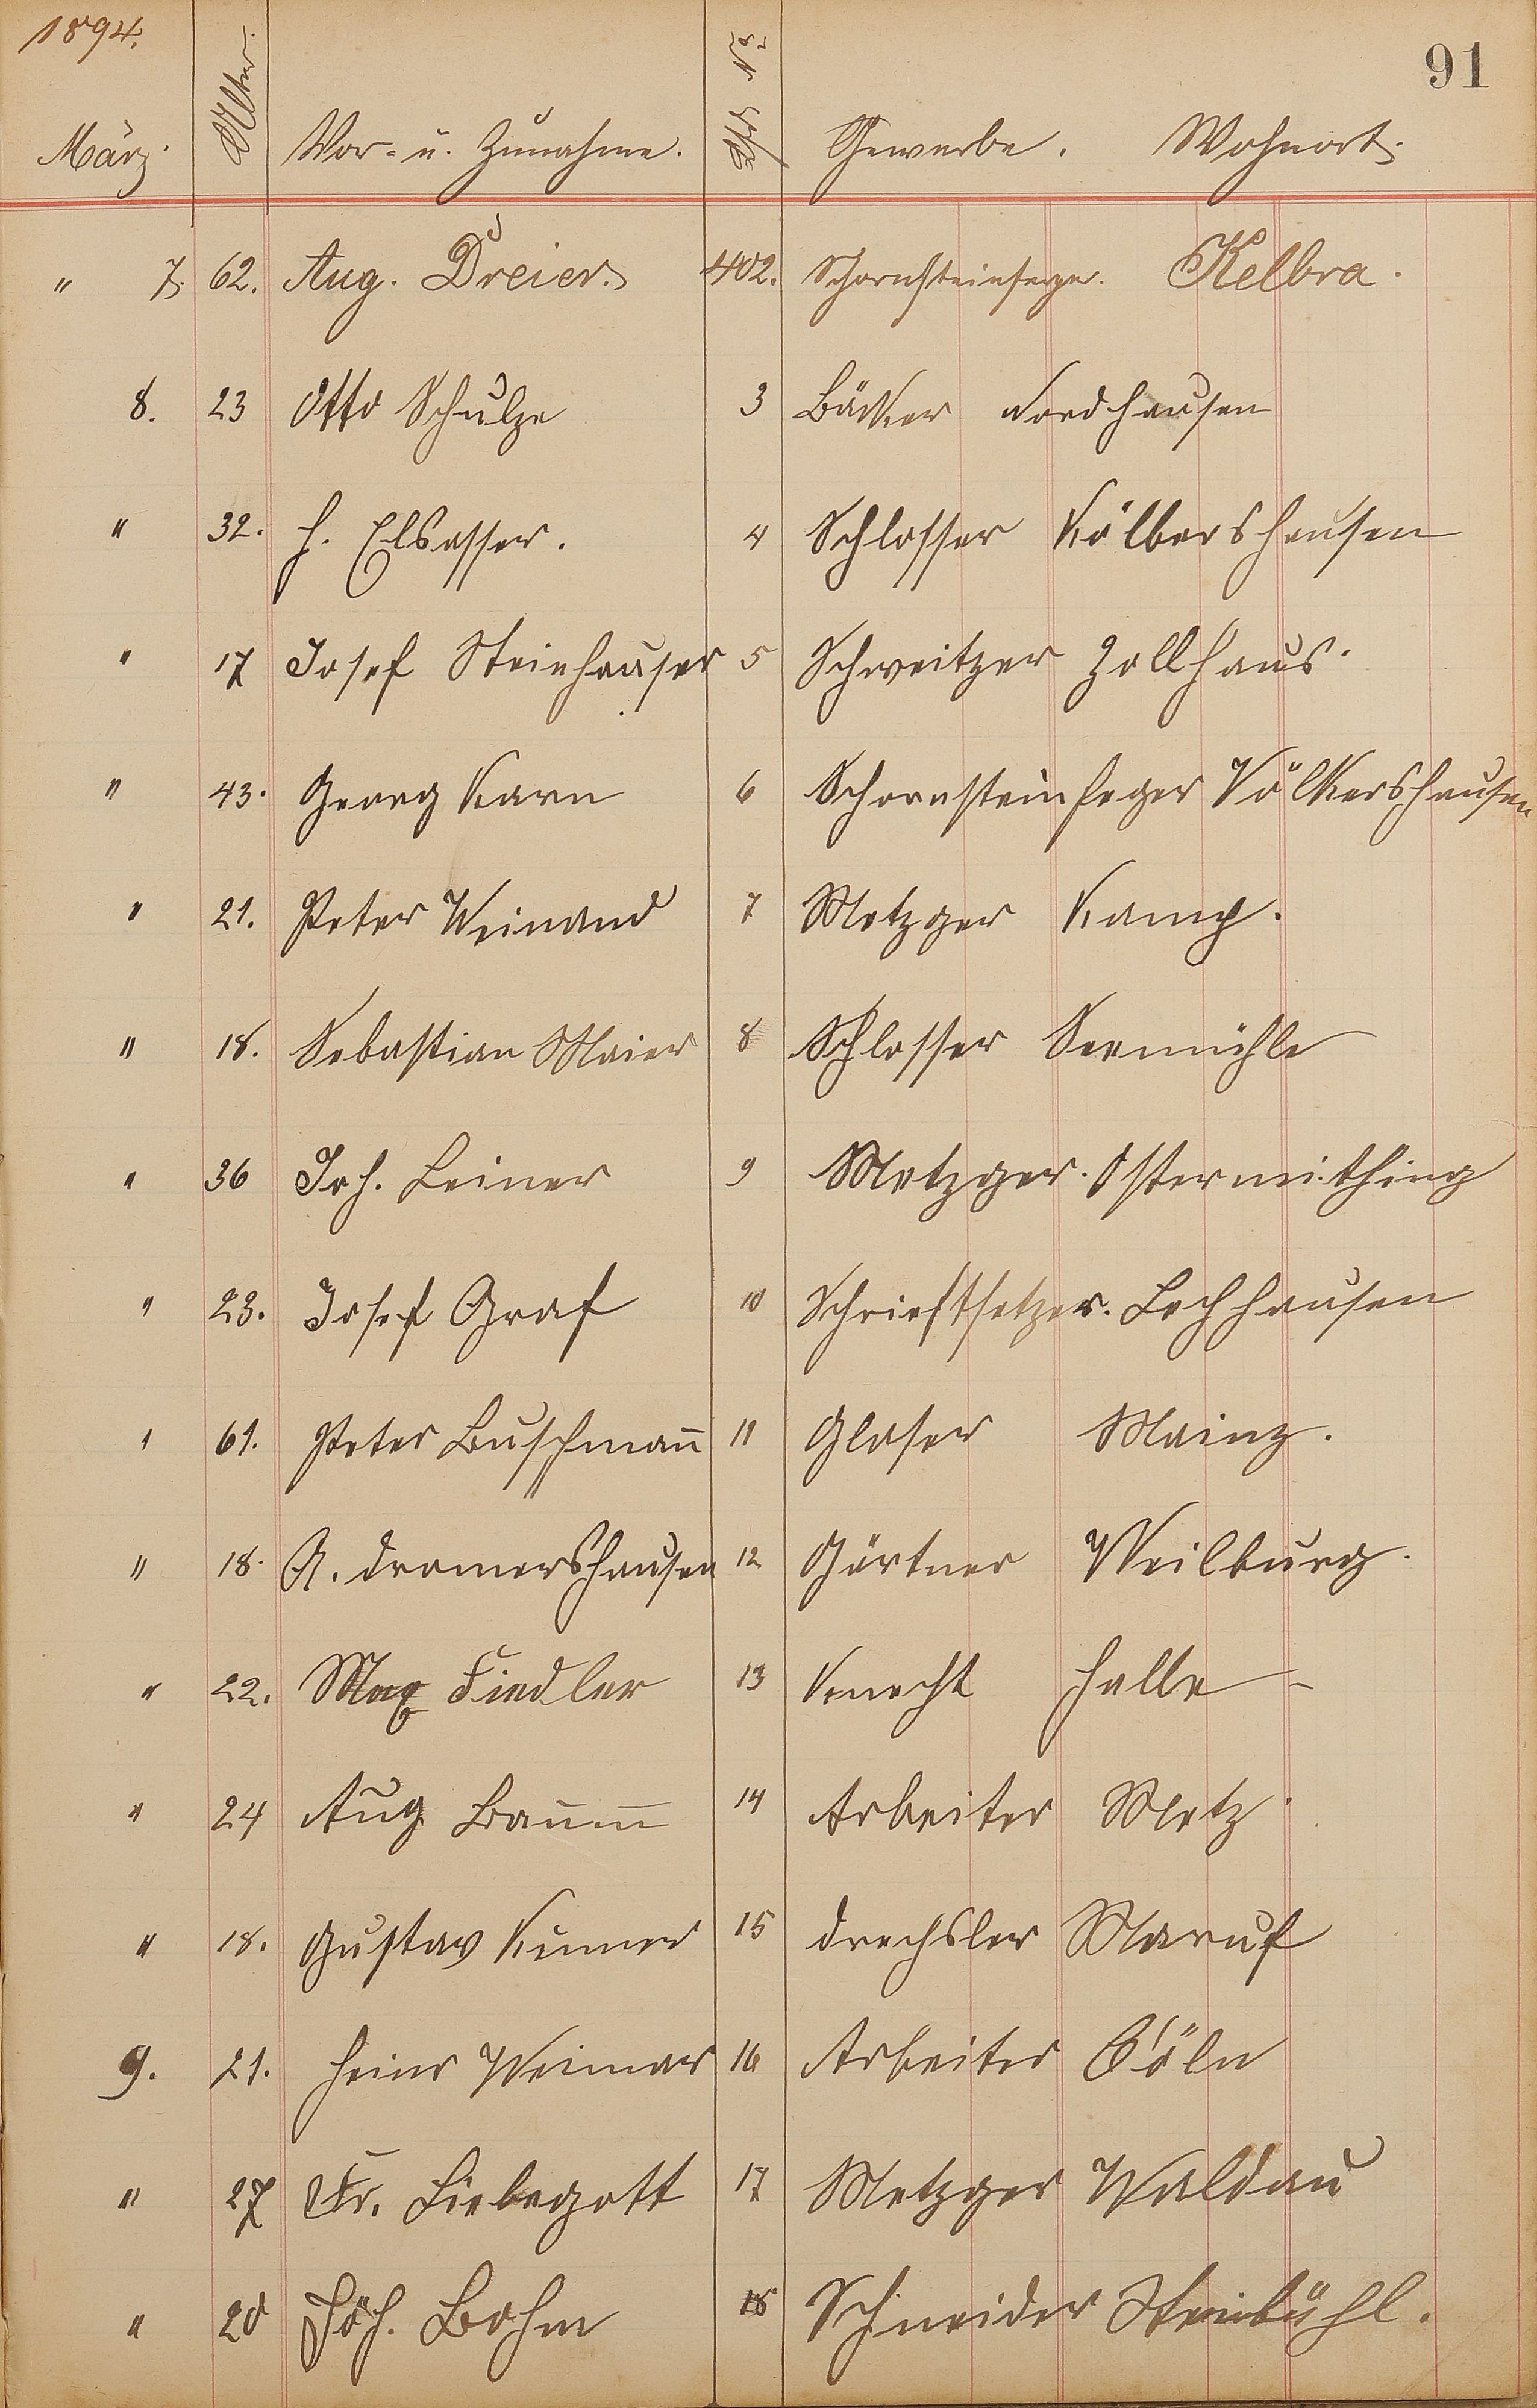 1894.
91
März. Alter. Vor- u. Zunahme. Lfde No Gewerbe. Wohnort.
" 7. 62. Aug. Dreier. 402. Schornsteinfeger. Kelbra.
8. 23 Otto Schulze 3 Bäcker Nordhausen
" 32. H. Elsasser. 4 Schlosser Kölbershausen
" 17 Josef Steinhauser 5 Schweitzer Zollhaus.
" 43. Georg Karn 6 Schornsteinfeger Völkershausen
" 21. Peter Weinand 7 Metzger Kamp.
" 18. Sebastian Maier 8 Schlosser Seemühle
" 36 Joh. Leiner 9 Metzger. Ostermithing
" 23. Josef Graf 10 Schriftsetzer. Lechhausen
" 61. Peter Buschmann 11 Glaser Mainz.
" 18. A. Dromershausen 12 Gärtner Weilburg.
" 22. Max Fiedler 13 Knecht Halle
" 24 Aug Baumm 14 Arbeiter Metz
" 18. Gustav 15 Drechsler
9. 21. Heinr Weimar 16 Arbeiter Cöln
" 27 Fr. Liebegott 17 Metzger Waldau
" 20 Joh. Bohm 18 Schneider Steinbühl.